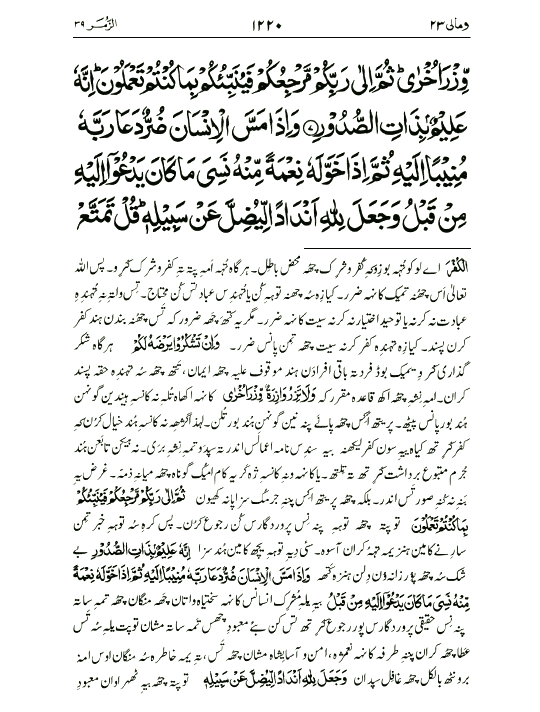 ومالی ۲۳ ۱۲۲۰ الزُّمَر ۳۹
وِّزْرَ اُخْرٰىؕ ثُمَّ اِلٰى رَبِّكُمْ مَّرْجِعُكُمْ فَيُنَبِّئُكُمْ بِمَا كُنْتُمْ تَعْمَلُوْنَؕ اِنَّهٗ
عَلِيْمٌۢ بِذَاتِ الصُّدُوْرِ۝۷ وَاِذَا مَسَّ الْاِنْسَانَ ضُرٌّ دَعَا رَبَّهٗ
مُنِيْبًا اِلَيْهِ ثُمَّ اِذَا خَوَّلَهٗ نِعْمَةً مِّنْهُ نَسِىَ مَا كَانَ يَدْعُوْۤا اِلَيْهِ
مِنْ قَبْلُ وَجَعَلَ لِلّٰهِ اَنْدَادًا لِّيُضِلَّ عَنْ سَبِيْلِهٖؕ قُلْ تَمَتَّعْ
الكُفْرَ اے لوکو تُہہ بوزِو کہ کُفر و شرک چھہ محض باطل۔ ہرگاہ تُہہ اَمہ پتہ تہِ کفر و شرک کرِو۔ پس اللہ
تعالیٰ اُس چھنہ تمیک کانہہ ضرر۔ کیازہ سُہ چھنہ توہہ کُن یا تُہندِس عبادتس کُن محتاج۔ تِس ولتہِ نہ تُہندِہ
عبادت نہ کرنہ یا توحید اختیار نہ کرنہ سیت کانہہ ضرر۔ مگر یہ کتھ چھہ ضرور کہ تَس چھنہ بندن ہند کفر
کرن پسند۔ کیازہ تہندِہ کفر کرنہ سیت چھہ تمن پانس ضرر۔ وَاِنْ تَشْكُرُوْا يَرْضَهُ لَكُمْ ہرگاہ شکر
گذاری کرِو ویمیک بوڈ فرد تہ باقی افرادن ہند موقوف علیہ چھہ ایمان، تتھ چھہ سُہ تہندِہ حقہ پسند
کران۔ اَمہ نِشہ چھہ اکھ قاعدہ مقرر کہ وَلَا تَزِرُ وَازِرَةٌ وِّزْرَ اُخْرٰى کانہہ اکھاہ تُلہِ نہ کانسہ ہیندِین گوبہن
ہند بور پانس پیٹھ۔ پریتھ اَکِس چھہ پانے پنہ نین گوبہن ہُند بور تُلن۔ لہذا گژھہِ نہ کانسہ ہُند خیال کرُن کہ
مُجرم متبوع برداشت کرِتھ تہ تلتھ۔ یا کانہہ ونہ کانسہ ژہ کر یہ کام امیک گوناہ چھہ میانہِ ذمہ۔ غرض یہ
بنہِ نہ کُنہِ صورتس اندر۔ بلکہ چھہ پریتھ اَکِس پننہِ جرمک سزا پانہ کھیون ثُمَّ اِلٰى رَبِّكُمْ مَّرْجِعُكُمْ فَيُنَبِّئُكُمْ
بِمَا كُنْتُمْ تَعْمَلُوْنَ تو پتہ چھہ توہہ پننِس پروردگارس کُن رجوع کرُن۔ پس کرِہ سُہ توہہ خبر تمن
سارِنے کامین ہنز یمہ تُہہ کران آسِو۔ سُتی دِیہ توہہ یچھ کامین ہند سزا اِنَّهٗ عَلِيْمٌۢ بِذَاتِ الصُّدُوْرِ بے
شک سُہ چھہ پوز زانہ وُن دِلن ہنزہ کتھہ وَاِذَا مَسَّ الْاِنْسَانَ ضُرٌّ دَعَا رَبَّهٗ مُنِيْبًا اِلَيْهِ ثُمَّ اِذَا خَوَّلَهٗ نِعْمَةً
مِّنْهُ نَسِىَ مَا كَانَ يَدْعُوْۤا اِلَيْهِ مِنْ قَبْلُ ییلہِ مُشرک انسانس کانہہ سختیاہ واتان چھہ منگان چھہ تمہ ساتہ
پنہ نِس حقیقی پروردگارس پور رجوع کرِتھ تس کن بنیہ معبود چھِس تمہ ساتہ مشان تو پت ییلہ سُہ تس
عطا چھہ کران پننہِ طرفہ کانہہ نعمتہ، امن و آسایشاہ مشان چھہ تس، تہ یمہ خاطرہ سُہ منگان اوس اَمہ
برونٹھ بالکل چھہ غافل سپدان وَجَعَلَ لِلّٰهِ اَنْدَادًا لِّيُضِلَّ عَنْ سَبِيْلِهٖ تو پتہ چھہ بیہِ ٹھہراوان معبودِ